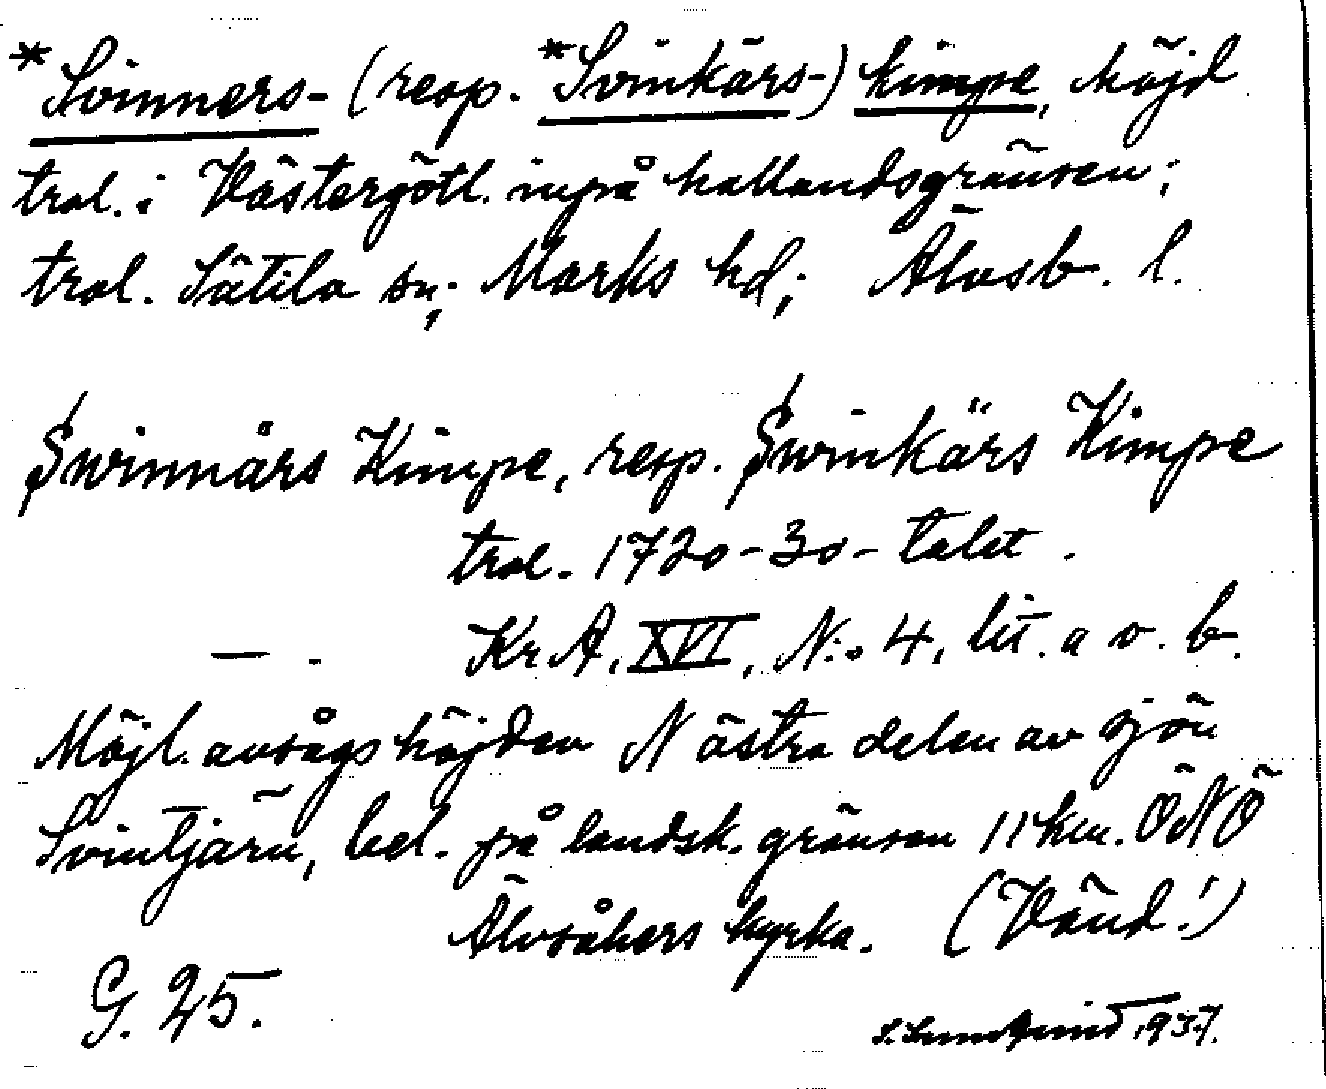 *Svinners- (resp. *Svinkärs-) kimpe, höjd
trol. i Västergötl. inpå hallandsgränsen;
trol. Sätila sn; Marks hd; Älvsb. l.
Swinnårs Kimpe, resp. Swinkärs Kimpe
trol. 1720-30-talet.
— . KrA, XVI, N:o 4, lit. a o. b.
Möjl. avsågs höjden N östra delen av sjön
Svintjärn, bel. på landsk.gränsen 11 km. ÖNÖ
Älvsåkers kyrka. (Vänd!)
G. 25.
S. Lundqvist 1937.